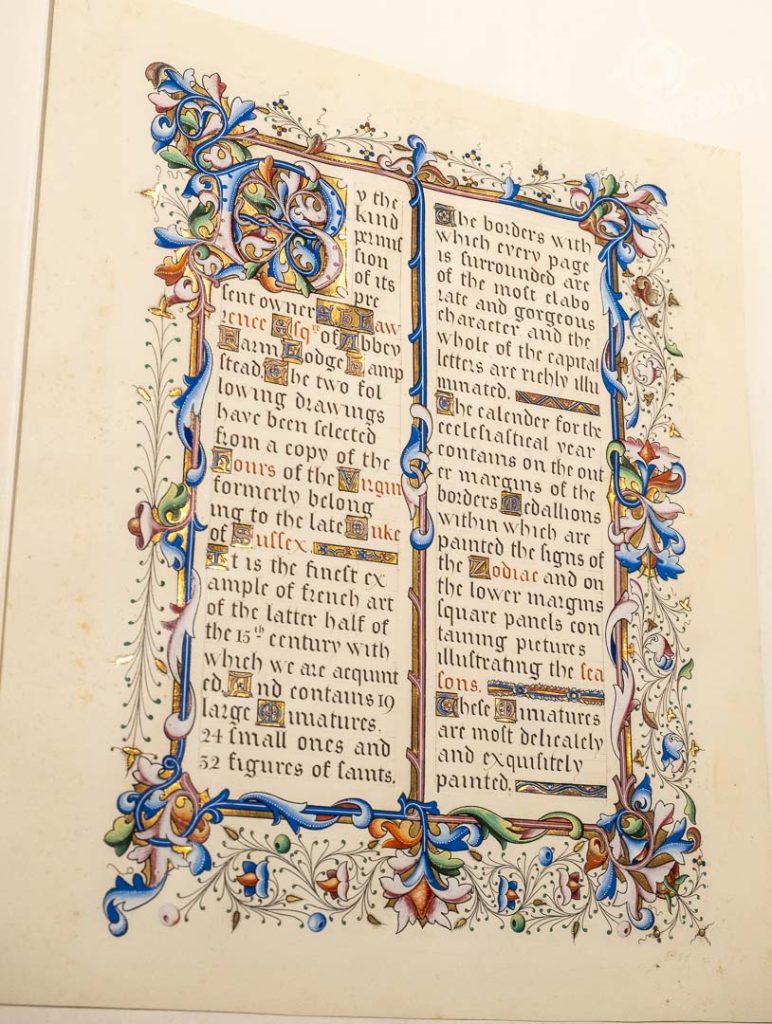 By the
kind
permis
sion
of its
pre
sent owner E. H. Law
rence Esqre of Abbey
Farm Lodge Hamp
stead. The two fol
lowing drawings
have been selected
from a copy of the
Hours of the Virgin
formerly belong
ing to the late Duke
of Sussex.
It is the finest ex
ample of french art
of the latter half of
the 15th century with
which we are acquaint
ed. And contains 19
large Miniatures,
24 small ones and
32 figures of saints.
The borders with
which every page
is surrounded are
of the most elabo
rate and gorgeous
character and the
whole of the capital
letters are richly illu
minated.
The calender for the
ecclesiastical year
contains on the out
er margins of the
borders Medallions
within which are
painted the signs of
the Zodiac and on
the lower margins
square panels con
taining pictures
illustrating the sea
sons.
These Miniatures
are most delicately
and exquisitely
painted.